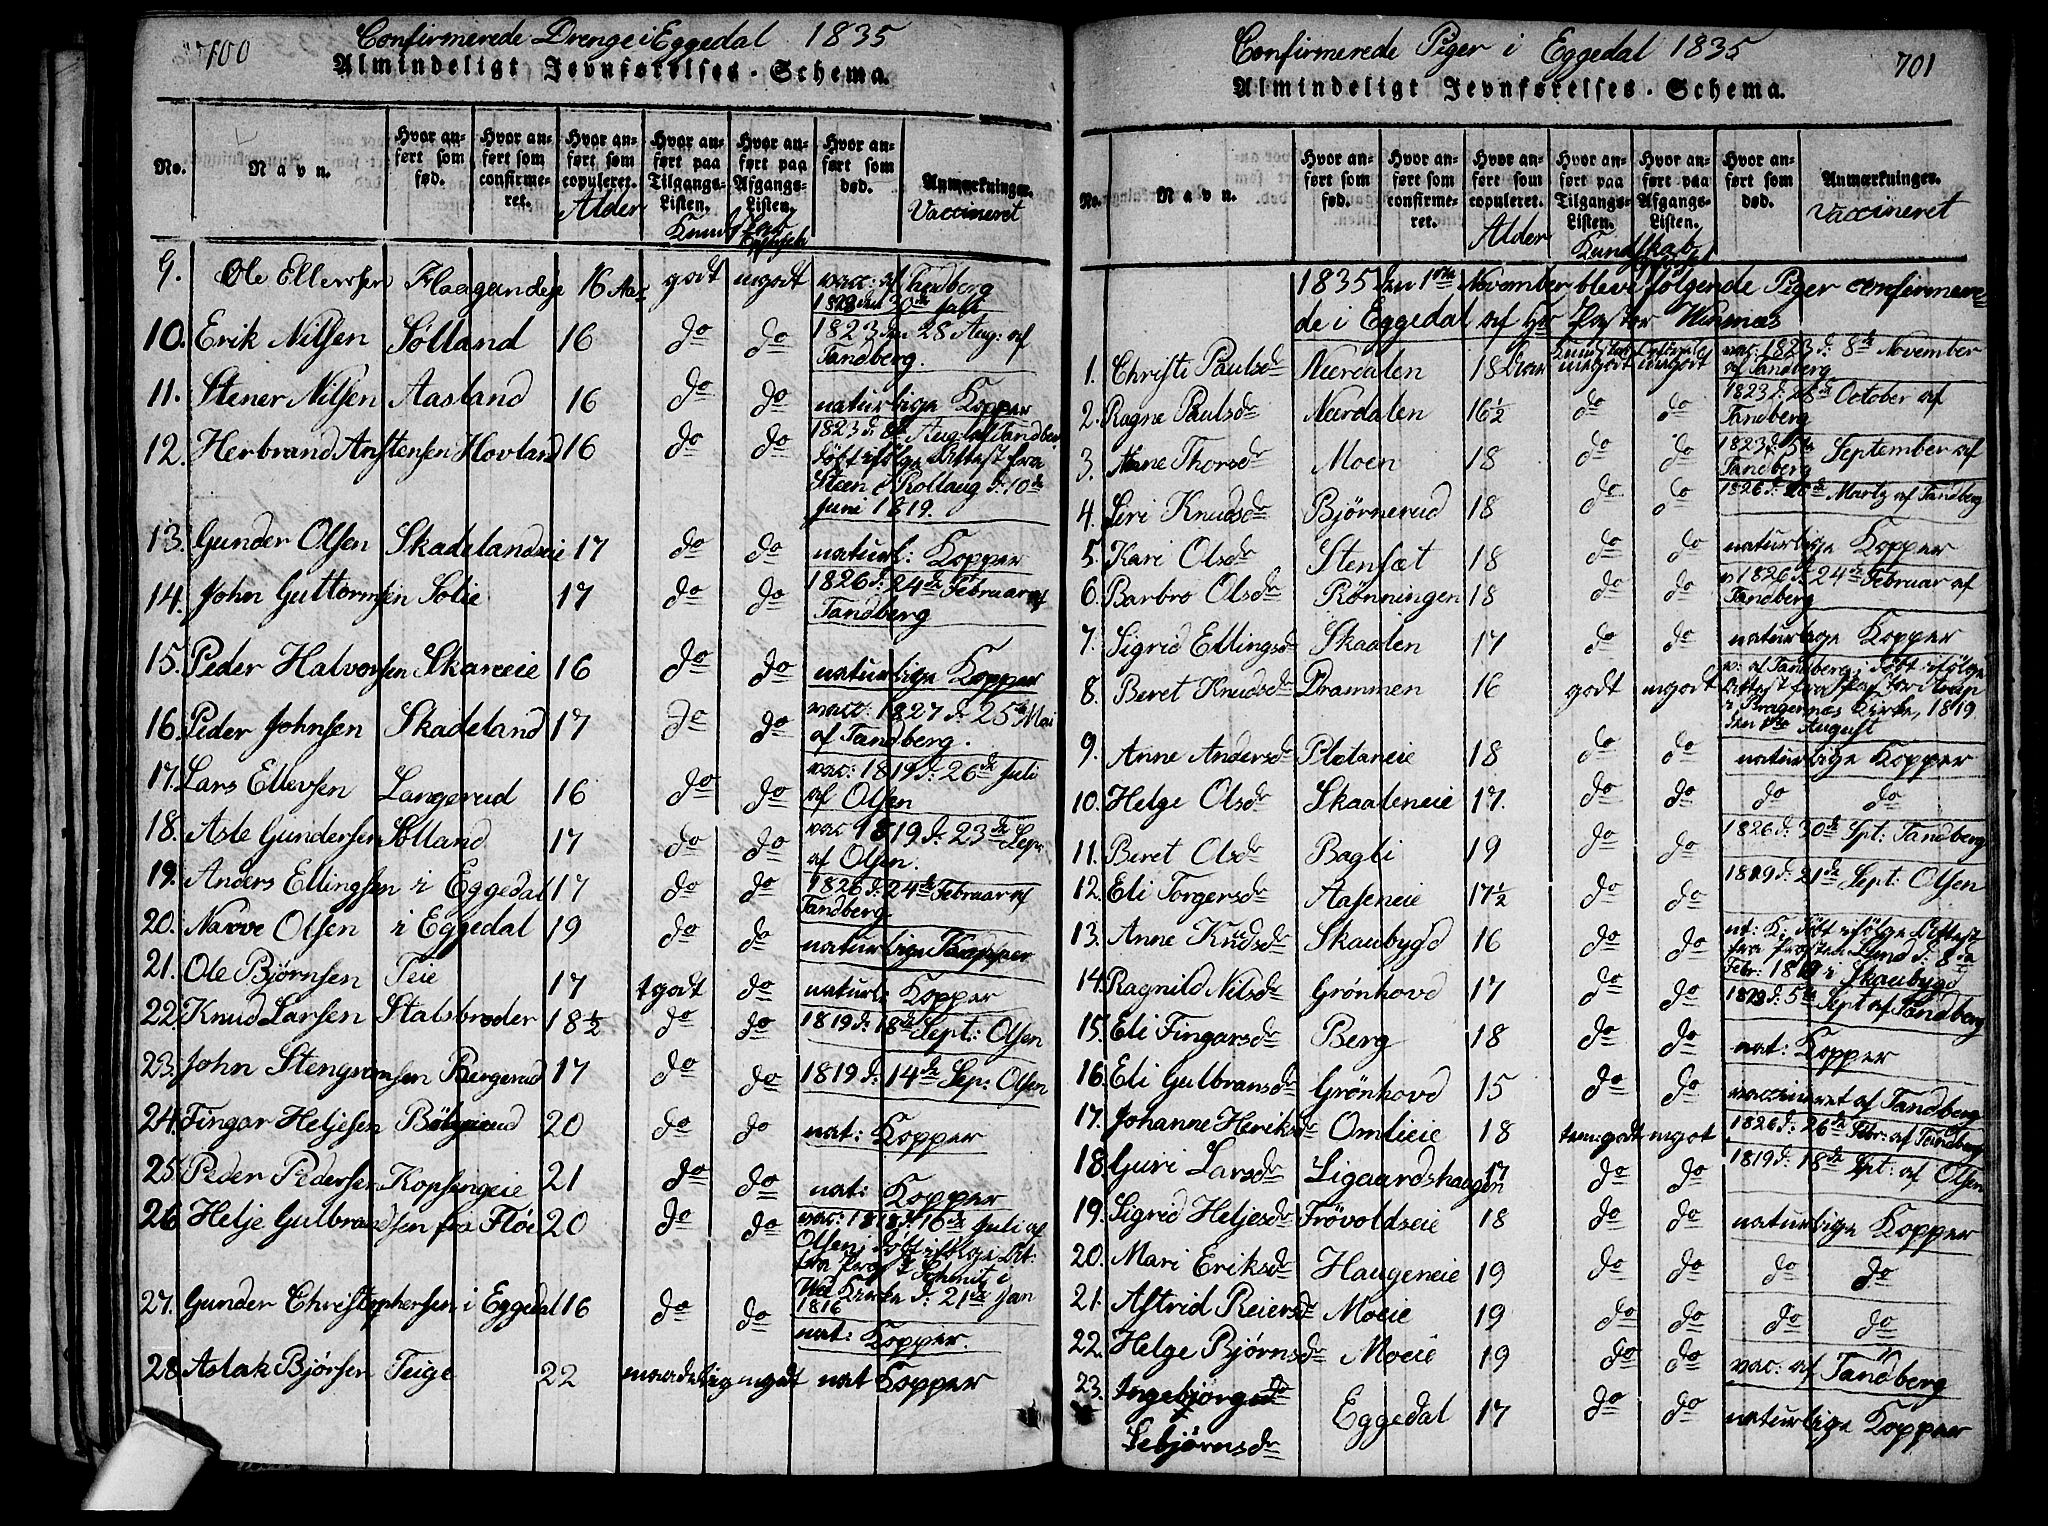 700
Confirmerede Drenge i Eggedal 1835
Almindeligt Jevnførelses-Schema.
No. Navn. Hvor anført som fød. Hvor anført som confirmeret. Hvor anført som copuleret. Hvor anført paa Tilgangs-Listen. Hvor anført paa Afgangs-Listen. Hvor anført som død. Anmærkninger.
Alder Vaccineret
9. Ole Ellevsen 16 Aar godt megodt vac: af Tandberg
10. Erik Nilsen Sølland 16 do do 1823 den 28 Aug: af
Tandberg.
11. Stener Nilsen Aasland 16 do do naturlige Kopper
12. Herbrand Hovland 16 do do 1823 d: Aug: af Tandberg
døbt ifølge Attest fra
Steen i Rollaug d: 10de
Juni 1819.
13. Gunder Olsen Skadelandseie 17 do do naturl: Kopper
14. John Guttormsen Solie 17 do do 1826 d: 24de Februar af
Tandberg
15. Peder Halvorsen Skareeie 16 do do naturlige Kopper
16. Peder Johnsen Skadeland 17 do do vacc: 1827 d: 25de Mai
af Tandberg.
17. Lars Ellevsen Langerud 16 do do vac: 1819 d: 26de Juli
af Olsen
18. Asle Gundersen Solland 17 do do vac 1819 d: 23de Sep:
af Olsen.
19. Anders Ellingsen i Eggedal 17 do do 1826 d: 24de Februar af
Tandberg
20. Narve Olsen i Eggedal 19 do do naturlige Kopper
21. Ole Bjørnsen Teie 17 tgodt do naturl: Kopper
22. Knud Larsen Stalsbroder 18½ do do 1819 d: 18de Sept: Olsen
23. John Stengrimsen Bergerud 17 do do 1819 d: 14de Sep: Olsen
24. Fingar Heljesen 20 do do nat: Kopper
25. Peder Pedersen Kopsengeie 21 do do nat: Kopper
26 Helje Gulbrandsen fra Fløe 20 do do vac: 1818 d: 16de Juli af
Olsen; døbt ifølge Att:
fra Præst Schmit i
Kirke d: 21de Jan
1816
27. Gunder Christophersen i Eggedal 16 do do nat: Kopper.
28 Aslak Bjørsen Teige 22 maadelig megodt nat Kopper
701
Confirmerede Piger i Eggedal 1835
Almindeligt Jevnførelses-Schema.
No. Navn. Hvor anført som fød. Hvor anført som confirmeret. Hvor anført som copuleret. Hvor anført paa Tilgangs-Listen. Hvor anført paa Afgangs-Listen. Hvor anført som død. Anmærkninger.
Alder Kundskab Vaccineret
1835 den 1ste November bleve følgende Piger confirmere-
de i Eggedal af Hr Pastor
1. Christi Paulsdr Nærdalen 18 megodt megodt vac: 1823 d: 8de November
af Tandberg
2. Ragne Paulsdr Nærdalen 16½ do do 1823 d: 28de October af
Tandberg
3. Anne Thorsdr Moen 18 do do 1823 d: 5te September af
Tandberg
4. Siri Knudsdr Bjørnerud 18 do do 1826 d: Martz af Tandberg
5. Kari Olsdr Stensæt 18 do do naturlige Kopper
6. Barbro Olsdr Rønningen 18 do do v 1826 d: 24de Februar af
Tandberg
7. Sigrid Ellingsdr Skaalen 17 do do naturlige Kopper
8. Beret Knudsdr Drammen 16 godt megodt v: af Tandberg; døbt ifølge
Attest fra Pastor
i Bragernæs Kirke, 1819
August
9. Anne Andersdr Plataneie 18 do do naturlige Kopper
10. Helge Olsdr Skaaleneie 17. do do do do
11. Beret Olsdr Bagli 19 do do 1826 d: 30de Spt: Tandberg
12. Eli Torgersdr Aaseneie 17½ do do 1819 d: 21de Sept: Olsen
13. Anne Knudsdr Skaubygd 16 do do nat: K: døbt ifølge Attest
fra Præsten Lund d: 8da
Febr: 1819 i Skaubygd
14. Ragnild Nilsdr Grønhovd 17 do do d: 5te Sept af Tandberg
15. Eli Fingarsdr Berg 18 do do nat: Kopper
16. Eli Gulbransdr Grønhovd 15 do do vaccineret af Tandberg
17. Johanne Heriksdr Omlieie 18 tem:godt megot 1826 d: 26de Febr: af Tandberg
18 Guri Larsdr Ligaardshaugen 17 do do 1819 d: 18de Spt: af Olsen
19. Sigrid Heljesdr Frövoldseie 18 do do naturlige Kopper
20. Mari Eriksdr Haugeneie 19 do do do do
21. Astrid Reiersdr Moeie 19 do do do do
22. Helge Bjørnsdr Moeie 19 do do vac: af Tandberg
23. Ingebjørg
Sebjørnsdr Eggedal 17 do do naturlige Kopper